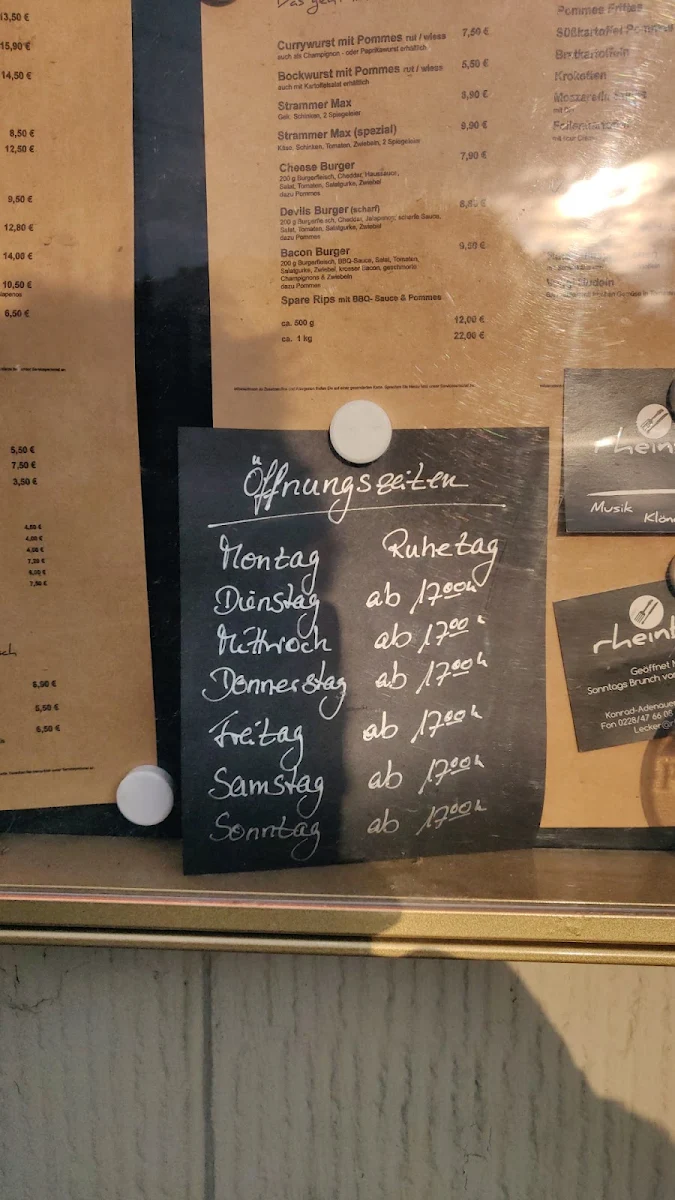 13,50 €
15,90 €
14,50 €
8,50 €
12,50 €
9,50 €
12,80 €
14,00 €
10,50 €
6,50 €
5,50 €
7,50 €
3,50 €
5,50 €
6,50 €
Das geht
Currywurst mit Pommes rot / weiss 7,50 €
auch als Champignon - oder Paprikawurst erhältlich
Bockwurst mit Pommes rot / weiss 5,50 €
auch mit Kartoffelsalat erhältlich
Strammer Max
Gek. Schinken, 2 Spiegeleier
Strammer Max (spezial)
Käse, Schinken, Tomaten, Zwiebeln, 2 Spiegeleier
Cheese Burger 7,90 €
200 g Burgerfleisch, Cheddar, Haussauce,
Salat, Tomaten, Salatgurke, Zwiebel
dazu Pommes
Devils Burger (scharf)
200 g Burgerfleisch, Cheddar, Jalapenos, scharfe Sauce,
Salat, Tomaten, Salatgurke, Zwiebel
dazu Pommes
Bacon Burger 9,50 €
200 g Burgerfleisch, BBQ-Sauce, Salat, Tomaten,
Salatgurke, Zwiebel, krosser Bacon, geschmorte
Champignons & Zwiebeln
dazu Pommes
Spare Rips mit BBQ- Sauce & Pommes
ca. 500 g 12,00 €
ca. 1 kg 22,00 €
Pommes Frites
Süßkartoffel Pommes
Bratkartoffeln
Kroketten
Öffnungszeiten
Montag Ruhetag
Dienstag ab 17ººh
Mittwoch ab 17ººh
Donnerstag ab 17ººh
Freitag ab 17ººh
Samstag ab 17ººh
Sonntag ab 17ººh
Musik
Geöffnet
Sonntags Brunch
Konrad-Adenauer
Fon 0228/47 66 08